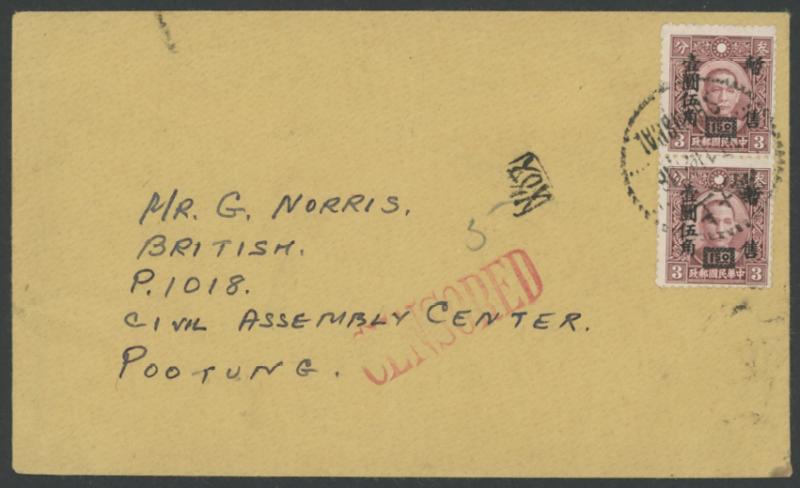 MR. G. NORRIS.
BRITISH.
P. 1018.
CIVIL ASSEMBLY CENTER.
POOTUNG.
CENSORED
5
分 叁
暫售
壹圓伍角
150
3 政郵國民華中 3
分 叁
暫售
壹圓伍角
150
3 政郵國民華中 3